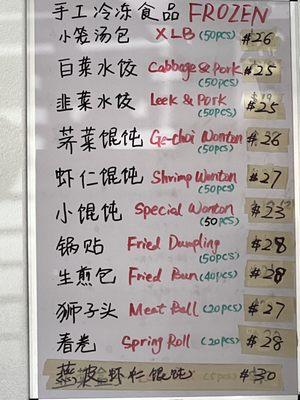 手工冷冻食品 FROZEN
小笼汤包 XLB (50pcs) $26
白菜水饺 Cabbage & Pork (50pcs) $25
韭菜水饺 Leek & Pork (50pcs) $25
荠菜馄饨 Ge-choi Wonton (50pcs) $26
虾仁馄饨 Shrimp Wonton (50pcs) $27
小馄饨 Special Wonton (50pcs) $23
锅贴 Fried Dumpling (50pcs) $28
生煎包 Fried Bun (40pcs) $28
狮子头 Meat Ball (20pcs) $27
春卷 Spring Roll (20pcs) $28
燕皮虾仁馄饨 $30